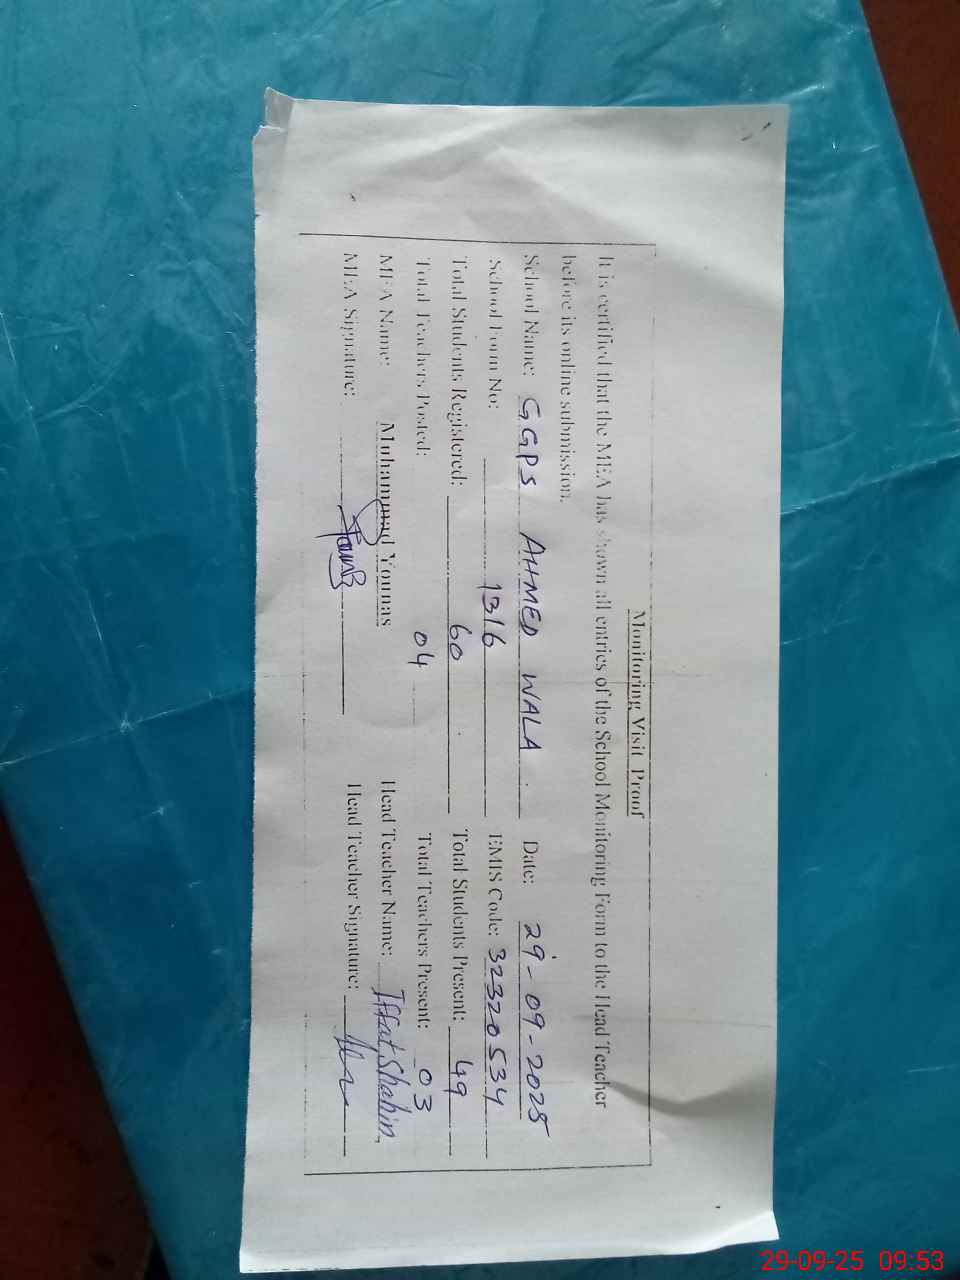 Monitoring Visit Proof
It is certified that the MEA has shown all entries of the School Monitoring Form to the Head Teacher
before its online submission.
School Name: GGPS AHMED WALA Date: 29-09-2025
School Form No: 1316 EMIS Code: 32320534
Total Students Registered: 60 Total Students Present: 49
Total Teachers Posted: 04 Total Teachers Present: 03
MEA Name: Muhammad Younas Head Teacher Name: Iffat Shahin
MEA Signature: Head Teacher Signature:
29-09-25 09:53